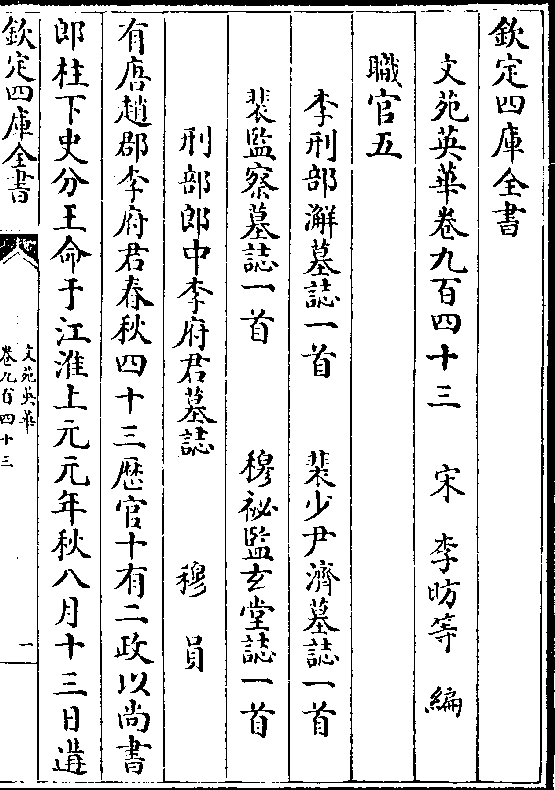 欽定四庫全書
文苑英華卷九百四十三 宋 李昉等 編
職官五
李刑部澥墓誌一首 裴少尹濟墓誌一首
裴監察墓誌一首 穆祕監玄堂誌一首
刑部郎中李府君墓誌 穆員
有唐趙郡李府君春秋四十三歴官十有二政以尚書
郎柱下史分王命于江淮上元元年秋八月十三日遘
欽定四庫全書
文苑英華
卷九百四十三
一